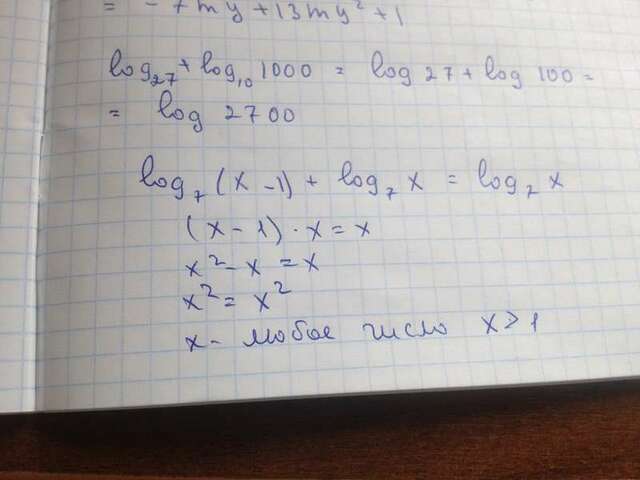 = - 7my + 13my² + 1
log₂₇ + log₁₀ 1000 = log 27 + log 100 =
= log 2700
log₇ (x - 1) + log₇ x = log₇ x
(x - 1) · x = x
x² - x = x
x² = x²
x - любое число x > 1